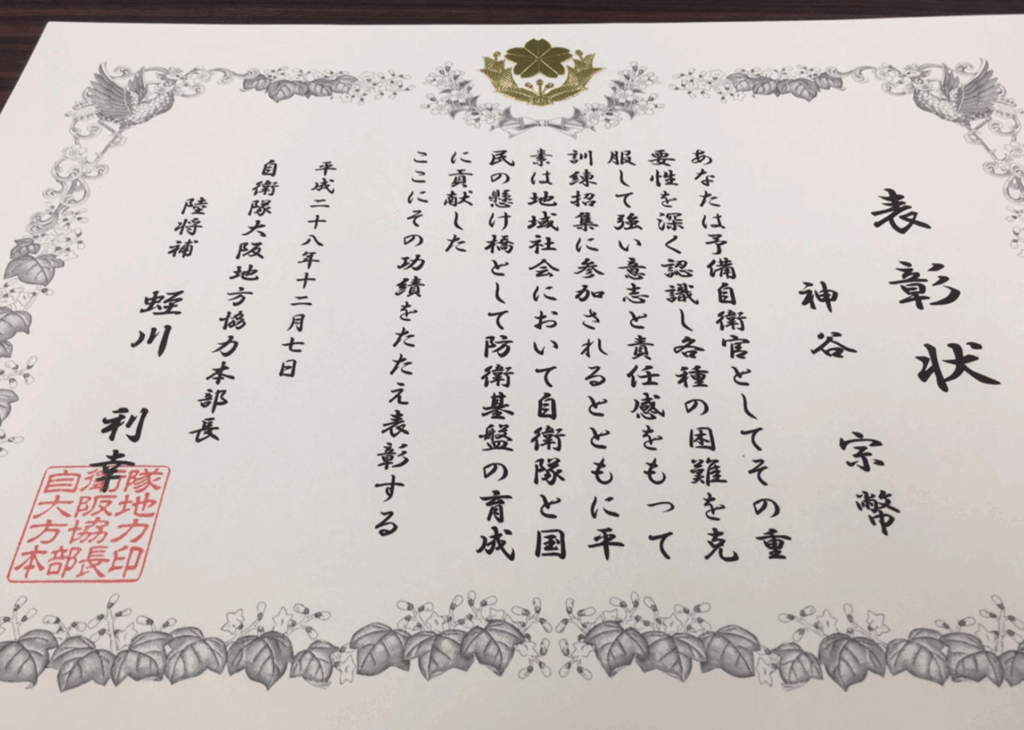 表彰状
神谷 宗幣
あなたは予備自衛官としてその重
要性を深く認識し各種の困難を克
服して強い意志と責任感をもって
訓練招集に参加されるとともに平
素は地域社会において自衛隊と国
民の懸け橋として防衛基盤の育成
に貢献した
ここにその功績をたたえ表彰する
平成二十八年十二月七日
自衛隊大阪地方協力本部長
陸将補 蛭川 利幸
自衛隊
大阪地
方協力
本部長印